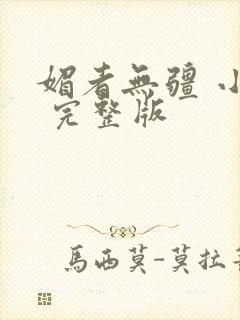 媚者無疆 小
完整版
馬西莫-莫拉